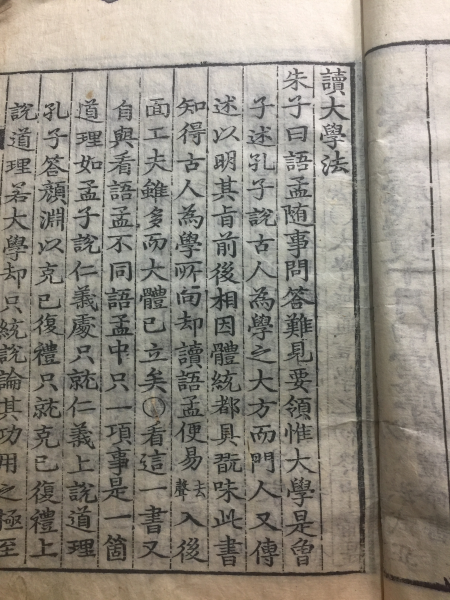 讀大學法
朱子曰語孟随事問答難見要領惟大學是曾
子述孔子說古人為學之大方而門人又傳
述以明其旨前後相因體統都具翫味此書
知得古人為學所向却讀語孟便易去聲入後
面工夫雖多而大體已立矣○看這一書又
自與看語孟不同語孟中只一項事是一箇
道理如孟子說仁義處只就仁義上說道理
孔子答顔淵以克己復禮只就克己復禮上
說道理若大學却只統說論其功用之極至